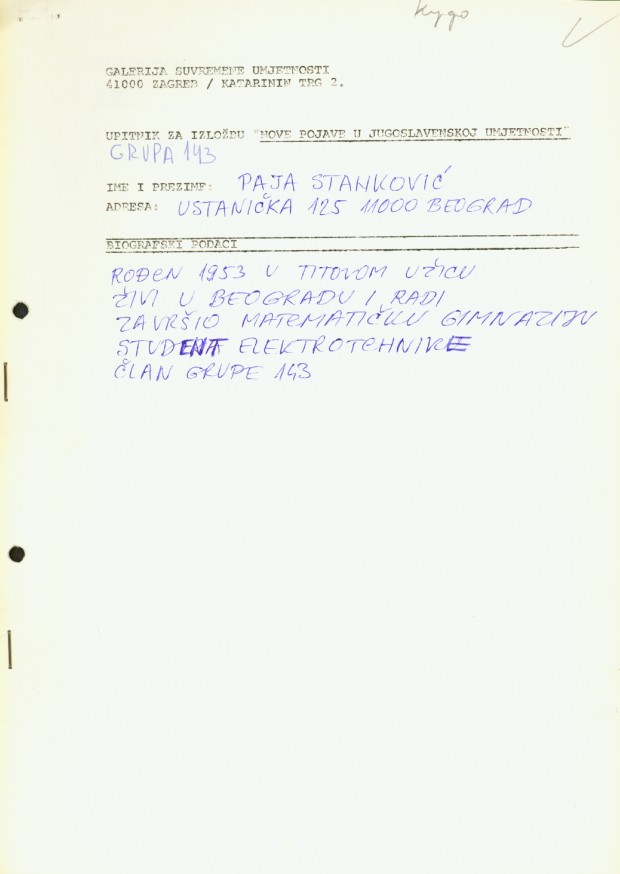 GALERIJA SUVREMENE UMJETNOSTI
41000 ZAGREB / KATARININ TRG 2.
UPITNIK ZA IZLOŽBU "NOVE POJAVE U JUGOSLAVENSKOJ UMJETNOSTI"
GRUPA 143
IME I PREZIME: PAJA STANKOVIĆ
ADRESA: USTANIČKA 125 11000 BEOGRAD
BIOGRAFSKI PODACI
ROĐEN 1953 U TITOVOM UŽICU
ŽIVI U BEOGRADU I RADI
ZAVRŠIO MATEMATIČKU GIMNAZIJU
STUDENT ELEKTROTEHNIKE
ČLAN GRUPE 143